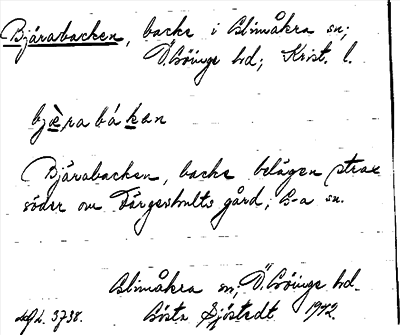 Bjärabacken, backe i Glimåkra sn;
Ö. Göinge hd; Krist. l.
bjæ̀rabákan
Bjärabacken, backe belägen strax
söder om Färgeshults gård; G-a sn.
Glimåkra sn, Ö. Göinge hd.
3738. Gösta Sjöstedt 1942.